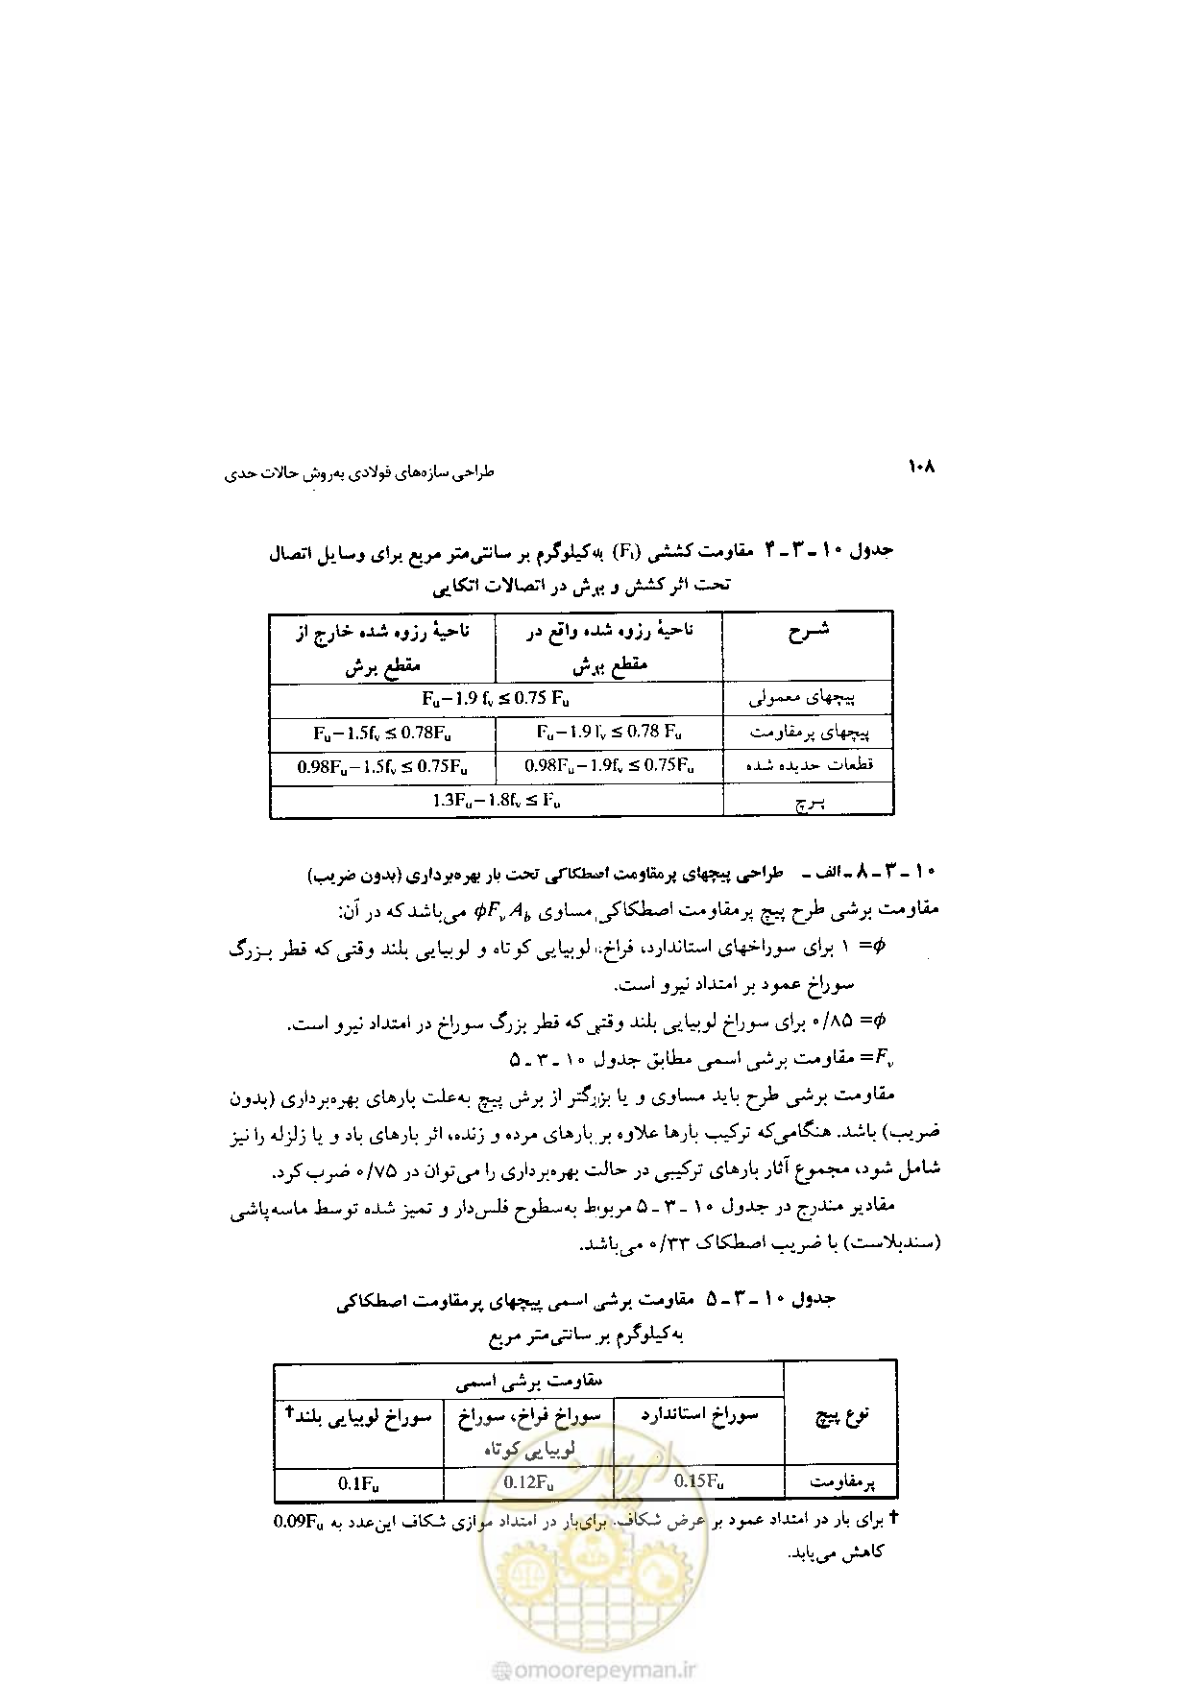 ۱۰۸
طراحی سازه‌های فولادی به‌روش حالات حدی
جدول ۱۰ـ۳ـ۴ مقاومت کششی (Ft) به‌کیلوگرم بر سانتی‌متر مربع برای وسایل اتصال
تحت اثر کشش و برش در اتصالات اتکایی
شـرح
ناحیهٔ رزوه شده واقع در
مقطع برش
ناحیهٔ رزوه شده خارج از
مقطع برش
پیچهای معمولی
Fu−1.9 fv ≤ 0.75 Fu
پیچهای پرمقاومت
Fu−1.9 fv ≤ 0.78 Fu
Fu−1.5fv ≤ 0.78Fu
قطعات حدیده شده
0.98Fu−1.9fv ≤ 0.75Fu
0.98Fu−1.5fv ≤ 0.75Fu
پـرچ
1.3Fu−1.8fv ≤ Fu
۱۰ـ۳ـ۸ـ‌الف ـ طراحی پیچهای پرمقاومت اصطکاکی تحت بار بهره‌برداری (بدون ضریب)
مقاومت برشی طرح پیچ پرمقاومت اصطکاکی مساوی ϕFv Ab می‌باشد که در آن:
ϕ= ۱ برای سوراخهای استاندارد، فراخ، لوبیایی کوتاه و لوبیایی بلند وقتی که قطر بـزرگ
سوراخ عمود بر امتداد نیرو است.
ϕ= ۰/۸۵ برای سوراخ لوبیایی بلند وقتی که قطر بزرگ سوراخ در امتداد نیرو است.
Fv= مقاومت برشی اسمی مطابق جدول ۱۰ـ۳ـ۵
مقاومت برشی طرح باید مساوی و یا بزرگتر از برش پیچ به‌علت بارهای بهره‌برداری (بدون
ضریب) باشد. هنگامی‌که ترکیب بارها علاوه بر بارهای مرده و زنده، اثر بارهای باد و یا زلزله را نیز
شامل شود، مجموع آثار بارهای ترکیبی در حالت بهره‌برداری را می‌توان در ۰/۷۵ ضرب کرد.
مقادیر مندرج در جدول ۱۰ـ۳ـ۵ مربوط به‌سطوح فلس‌دار و تمیز شده توسط ماسه‌پاشی
(سندبلاست) با ضریب اصطکاک ۰/۳۳ می‌باشد.
جدول ۱۰ـ۳ـ۵ مقاومت برشی اسمی پیچهای پرمقاومت اصطکاکی
به‌کیلوگرم بر سانتی‌متر مربع
نوع پیچ
مقاومت برشی اسمی
سوراخ استاندارد
سوراخ فراخ، سوراخ
لوبیایی کوتاه
سوراخ لوبیایی بلند†
پرمقاومت
0.15Fu
0.12Fu
0.1Fu
† برای بار در امتداد عمود بر عرض شکاف. برای‌بار در امتداد موازی شکاف این‌عدد به 0.09Fu
کاهش می‌یابد.
امور پیمان
@omoorepeyman.ir